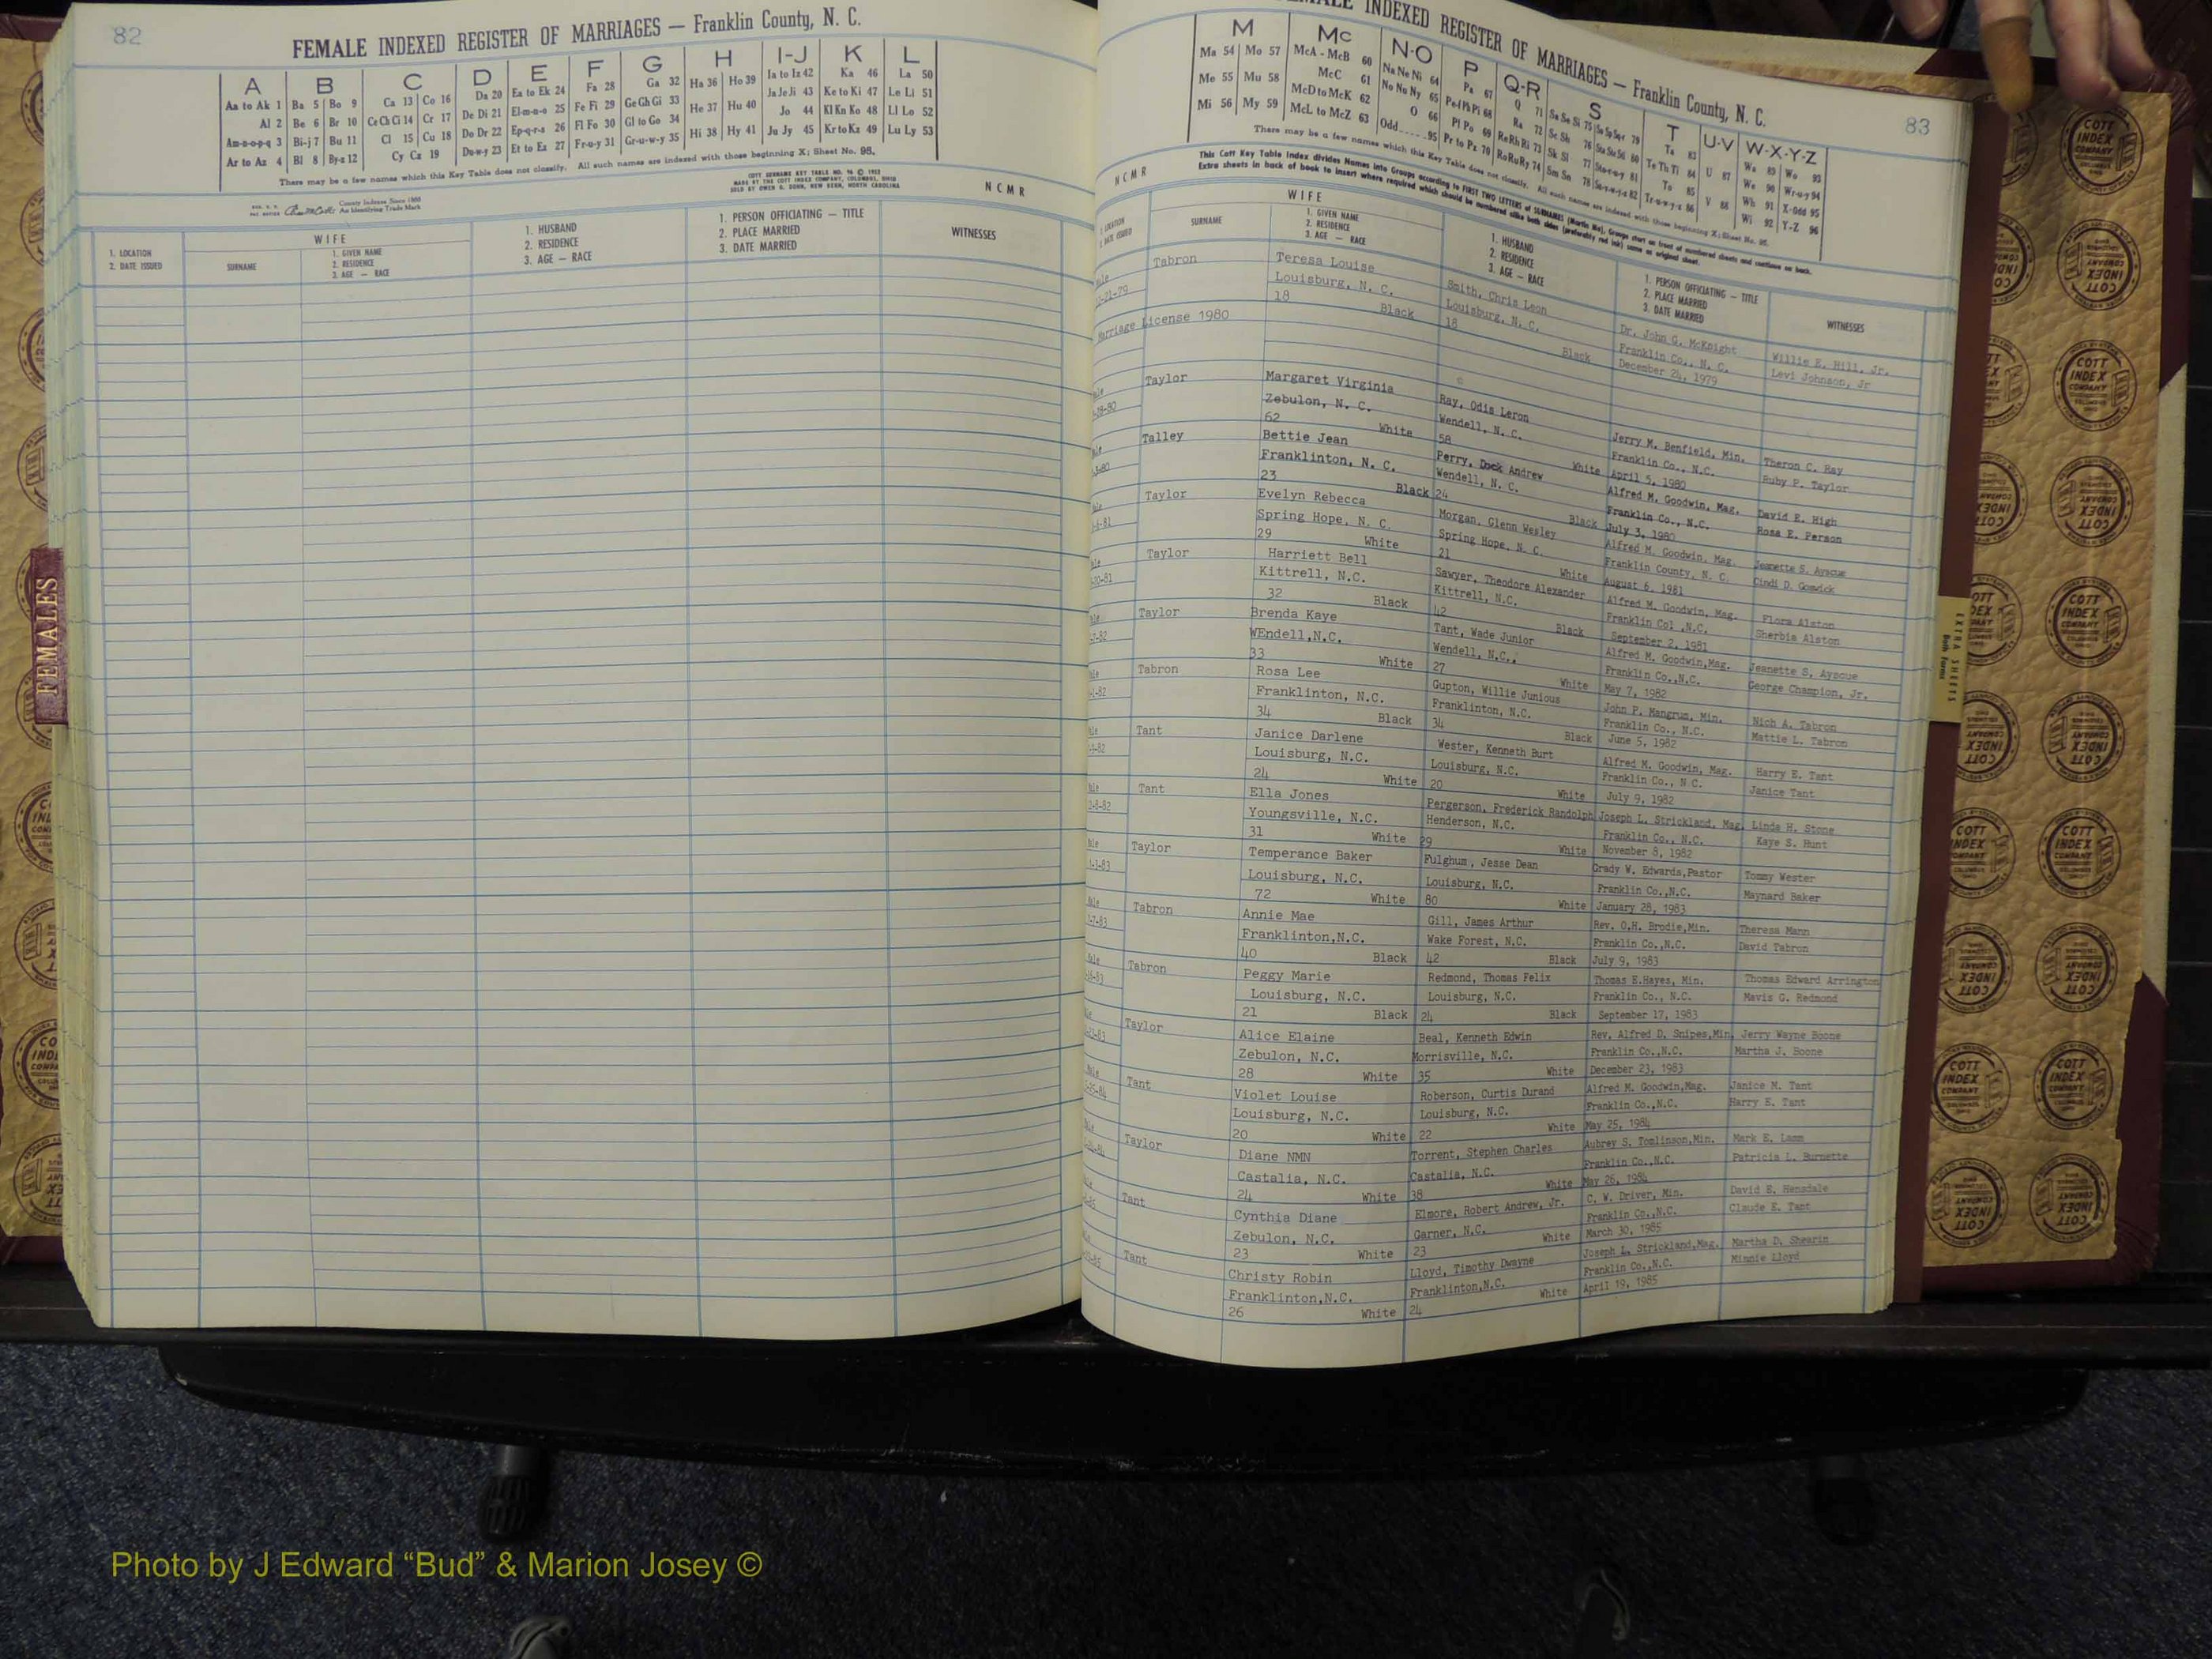 82
FEMALE INDEXED REGISTER OF MARRIAGES — Franklin County, N. C.
A B C D E F G H I-J K L
Aa to Ak 1 Ba 5 Bo 9 Ca 13 Co 16 Da 20 Ea to Ek 24 Fa 28 Ga 32 Ha 36 Ho 39 Ia to Iz 42 Ka 46 La 50
Al 2 Be 6 Br 10 Ce Ch Ci 14 Cr 17 De Di 21 El-m-n-o 25 Fe Fi 29 Ge Gh Gi 33 He 37 Hu 40 Ja Je Ji 43 Ke to Ki 47 Le Li 51
Am-n-o-p-q 3 Bi-j 7 Bu 11 Cl 15 Cu 18 Do Dr 22 Ep-q-r-s 26 Fl Fo 30 Gl to Go 34 Hi 38 Hy 41 Jo 44 Kl Kn Ko 48 Ll Lo 52
Ar to Az 4 Bl 8 By-z 12 Cy Cz 19 Du-w-y 23 Et to Ez 27 Fr-u-y 31 Gr-u-w-y 35 Ju Jy 45 Kr to Kz 49 Lu Ly 53
There may be a few names which this Key Table does not classify. All such names are indexed with those beginning X; Sheet No. 95.
County Indexes Since 1888
An Identifying Trade Mark
COTT SURNAME KEY TABLE NO. 96 © 1952
MADE BY THE COTT INDEX COMPANY, COLUMBUS, OHIO
SOLD BY OWEN G. DUNN, NEW BERN, NORTH CAROLINA
NCMR
1. LOCATION
2. DATE ISSUED
WIFE
SURNAME
1. GIVEN NAME
2. RESIDENCE
3. AGE — RACE
1. HUSBAND
2. RESIDENCE
3. AGE — RACE
1. PERSON OFFICIATING — TITLE
2. PLACE MARRIED
3. DATE MARRIED
WITNESSES
FEMALES
INDEXED REGISTER OF MARRIAGES — Franklin County, N. C.
83
M Mc N-O P Q-R S T U-V W-X-Y-Z
Ma 54 Mo 57 McA - McB 60 Na Ne Ni 64 Pa 67 Q 71
Me 55 Mu 58 McC 61 No Nu Ny 65 Ra 72
Mi 56 My 59 McD to McK 62 O 66 Pl Po 69 Re Rh Ri 73
McL to McZ 63 Odd 95 Pr to Pz 70 Ro Ru Ry 74
There may be a few names which this Key Table does not classify. All such names are indexed with those beginning X; Sheet No. 95.
This Cott Key Table Index divides Names into Groups according to FIRST TWO LETTERS of SURNAMES
NCMR
WIFE
SURNAME
1. GIVEN NAME
2. RESIDENCE
3. AGE — RACE
1. HUSBAND
2. RESIDENCE
3. AGE — RACE
1. PERSON OFFICIATING — TITLE
2. PLACE MARRIED
3. DATE MARRIED
WITNESSES
Tabron Teresa Louise Smith, Chris Leon Dr. John G. McKnight Willie E. Hill, Jr.
Louisburg, N. C. Louisburg, N. C. Franklin Co., N. C. Levi Johnson, Jr
18 Black 18 Black December 24, 1979
Marriage License 1980
Taylor Margaret Virginia Ray, Odis Leron Jerry M. Benfield, Min. Theron C. Ray
Zebulon, N. C. Wendell, N. C. Franklin Co., N.C. Ruby P. Taylor
62 White 58 White April 5, 1980
Talley Bettie Jean Perry, Dock Andrew Alfred M. Goodwin, Mag. David E. High
Franklinton, N. C. Wendell, N. C. Franklin Co., N.C. Rosa E. Person
23 Black 24 Black July 3, 1980
Taylor Evelyn Rebecca Morgan, Glenn Wesley Alfred M. Goodwin, Mag. Jeanette S. Ayscue
Spring Hope, N. C. Spring Hope, N. C. Franklin County, N. C. Cindi D. Gomdick
29 White 21 White August 6, 1981
Taylor Harriett Bell Sawyer, Theodore Alexander Alfred M. Goodwin, Mag. Flora Alston
Kittrell, N.C. Kittrell, N.C. Franklin Col ,N.C. Sherbia Alston
32 Black 42 Black September 2, 1981
Taylor Brenda Kaye Tant, Wade Junior Alfred M. Goodwin,Mag. Jeanette S. Ayscue
WEndell,N.C. Wendell, N.C.. Franklin Co.,N.C. George Champion, Jr.
33 White 27 White May 7, 1982
Tabron Rosa Lee Gupton, Willie Junious John P. Mangrum, Min. Nich A. Tabron
Franklinton, N.C. Franklinton, N.C. Franklin Co., N.C. Mattie L. Tabron
34 Black 34 Black June 5, 1982
Tant Janice Darlene Wester, Kenneth Burt Alfred M. Goodwin, Mag. Harry E. Tant
Louisburg, N.C. Louisburg, N.C. Franklin Co., N C. Janice Tant
24 White 20 White July 9, 1982
Tant Ella Jones Pergerson, Frederick Randolph Joseph L. Strickland, Mag. Linda H. Stone
Youngsville, N.C. Henderson, N.C. Franklin Co., N.C. Kaye S. Hunt
31 White 29 White November 8, 1982
Taylor Temperance Baker Fulghum, Jesse Dean Grady W. Edwards,Pastor Tommy Wester
Louisburg, N.C. Louisburg, N.C. Franklin Co.,N.C. Maynard Baker
72 White 80 White January 28, 1983
Tabron Annie Mae Gill, James Arthur Rev. O.H. Brodie,Min. Theresa Mann
Franklinton,N.C. Wake Forest, N.C. Franklin Co.,N.C. David Tabron
40 Black 42 Black July 9, 1983
Tabron Peggy Marie Redmond, Thomas Felix Thomas E.Hayes, Min. Thomas Edward Arrington
Louisburg, N.C. Louisburg, N.C. Franklin Co., N.C. Mavis G. Redmond
21 Black 24 Black September 17, 1983
Taylor Alice Elaine Beal, Kenneth Edwin Rev. Alfred D. Snipes,Min Jerry Wayne Boone
Zebulon, N.C. Morrisville, N.C. Franklin Co.,N.C. Martha J. Boone
28 White 35 White December 23, 1983
Tant Violet Louise Roberson, Curtis Durand Alfred M. Goodwin,Mag. Janice M. Tant
Louisburg, N.C. Louisburg, N.C. Franklin Co.,N.C. Harry E. Tant
20 White 22 White May 25, 1984
Taylor Diane NMN Torrent, Stephen Charles Aubrey S. Tomlinson,Min. Mark E. Lamm
Castalia, N.C. Castalia, N.C. Franklin Co.,N.C. Patricia L. Burnette
24 White 38 White May 26, 1984
Tant Cynthia Diane Elmore, Robert Andrew, Jr. C. W. Driver, Min. David E. Hensdale
Zebulon, N.C. Garner, N.C. Franklin Co.,N.C. Claude E. Tant
23 White 23 White March 30, 1985
Tant Christy Robin Lloyd, Timothy Dwayne Joseph L. Strickland,Mag. Martha D. Shearin
Franklinton,N.C. Franklinton,N.C. Franklin Co.,N.C. Minnie Lloyd
26 White 24 White April 19, 1985
EXTRA SHEETS
COTT INDEX COMPANY
Photo by J Edward “Bud” & Marion Josey ©